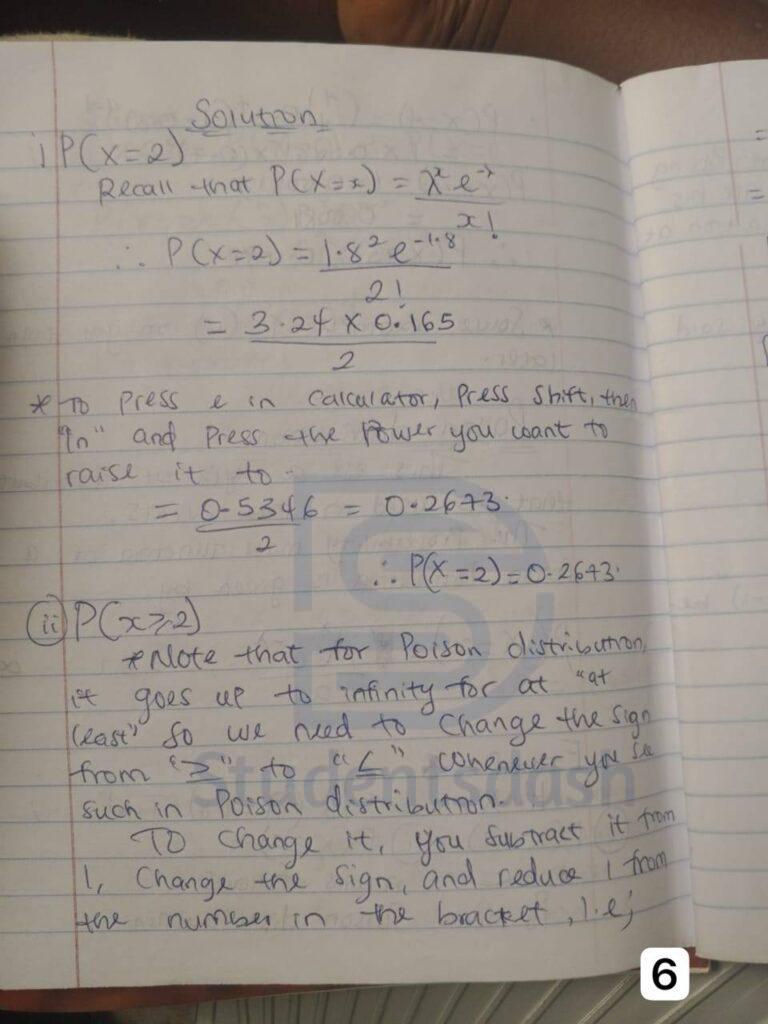 Solution
i P(X=2)
Recall that P(X=x) = λˣ e^-λ
x!
∴ P(X=2) = 1.8² e^-1.8
2!
= 3.24 x 0.165
2
* To press e in calculator, Press Shift, then
"ln" and Press the Power you want to
raise it to.
= 0.5346 = 0.2673.
2
∴ P(X=2) = 0.2673.
ii P(x≥2)
* Note that for Poison distribution,
it goes up to infinity for at "at
least" so we need to change the sign
from "≥" to "≤" whenever you see
such in Poison distribution.
To change it, you subtract it from
1, change the sign, and reduce 1 from
the number in the bracket, i.e;
Studentsdash
6